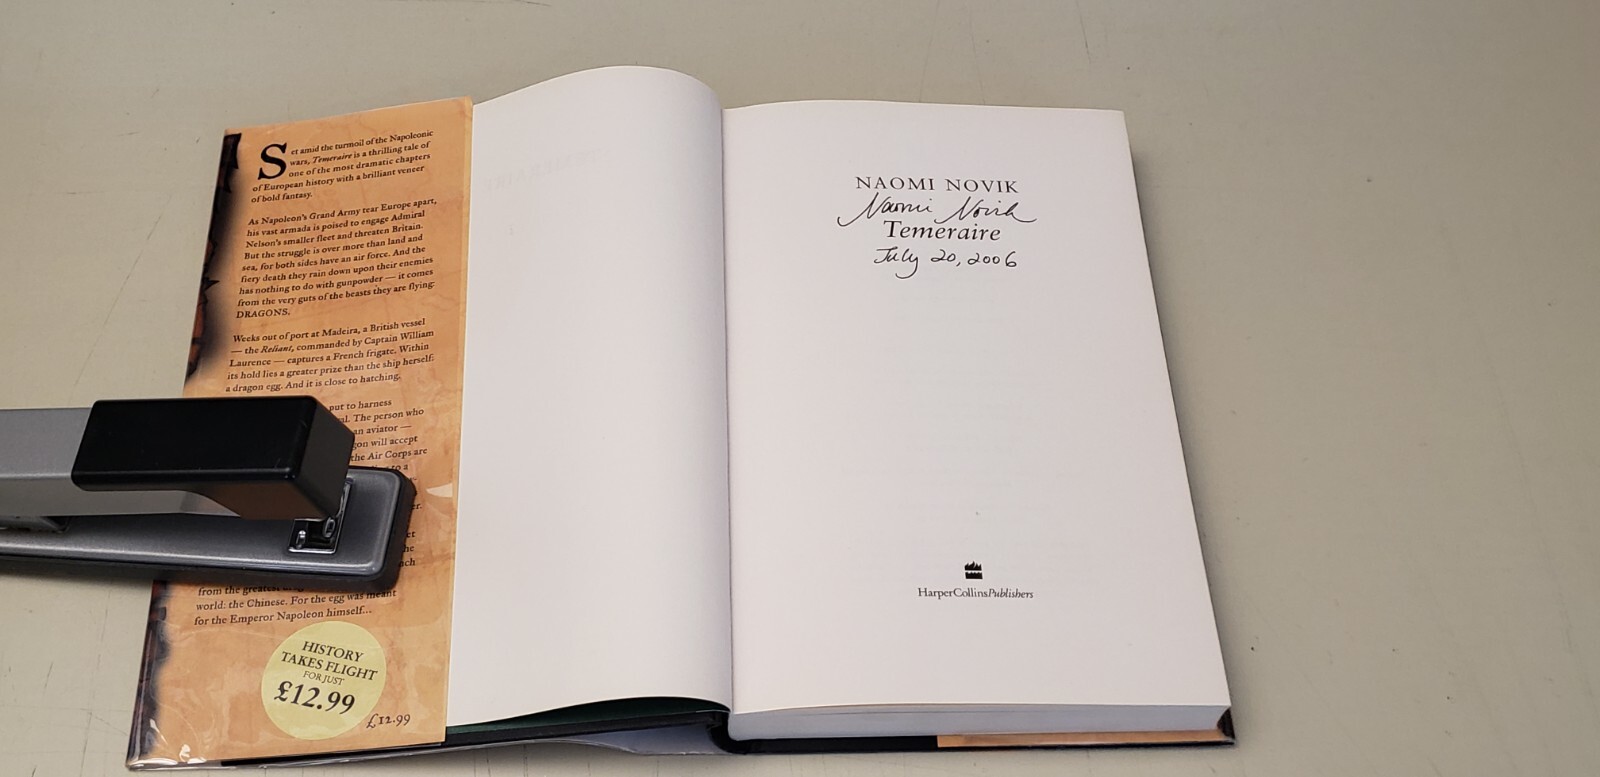 Set amid the turmoil of the Napoleonic
wars, Temeraire is a thrilling tale of
one of the most dramatic chapters
of European history with a brilliant veneer
of bold fantasy.
As Napoleon's Grand Army tear Europe apart,
his vast armada is poised to engage Admiral
Nelson's smaller fleet and threaten Britain.
But the struggle is over more than land and
sea, for both sides have an air force. And the
fiery death they rain down upon their enemies
has nothing to do with gunpowder — it comes
from the very guts of the beasts they are flying:
DRAGONS.
Weeks out of port at Madeira, a British vessel
— the Reliant, commanded by Captain William
Laurence — captures a French frigate. Within
its hold lies a greater prize than the ship herself:
a dragon egg. And it is close to hatching.
put to harness
The person who
an aviator —
will accept
the Air Corps are
to a
from the greatest
world: the Chinese. For the egg was meant
for the Emperor Napoleon himself...
HISTORY
TAKES FLIGHT
FOR JUST
£12.99
£12.99
NAOMI NOVIK
Naomi Novik
Temeraire
July 20, 2006
HarperCollinsPublishers